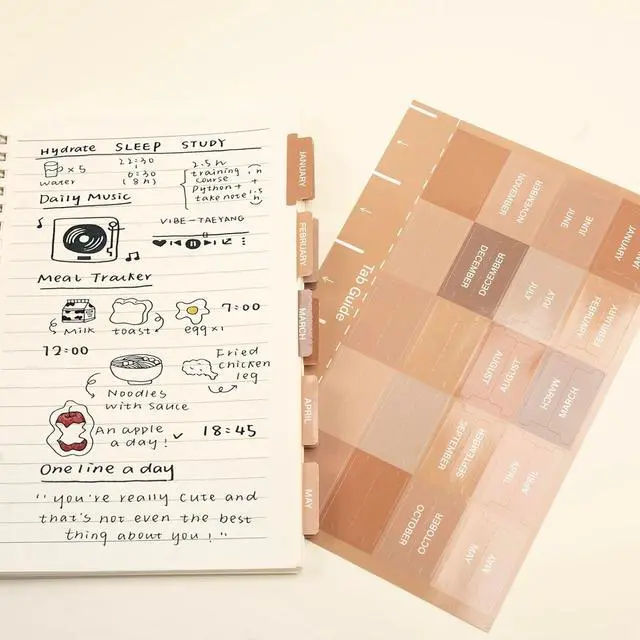 Hydrate SLEEP STUDY
x5 22:30 2.5h
water 6:30 training
(8h) course
Python +
take note
Daily Music
VIBE-TAEYANG
Meal Tracker
Milk toast egg x1 7:00
12:00
Noodles
with sauce
Fried
chicken
leg
An apple
a day! 18:45
One line a day
"you're really cute and
that's not even the best
thing about you!"
JANUARY
FEBRUARY
MARCH
APRIL
MAY
Tab Guide
NOVEMBER
NOVEMBER
JUNE
JUNE
JANUARY
DECEMBER
DECEMBER
JULY
JULY
FEBRUARY
FEBRUARY
AUGUST
AUGUST
MARCH
MARCH
SEPTEMBER
SEPTEMBER
APRIL
APRIL
OCTOBER
OCTOBER
MAY
MAY